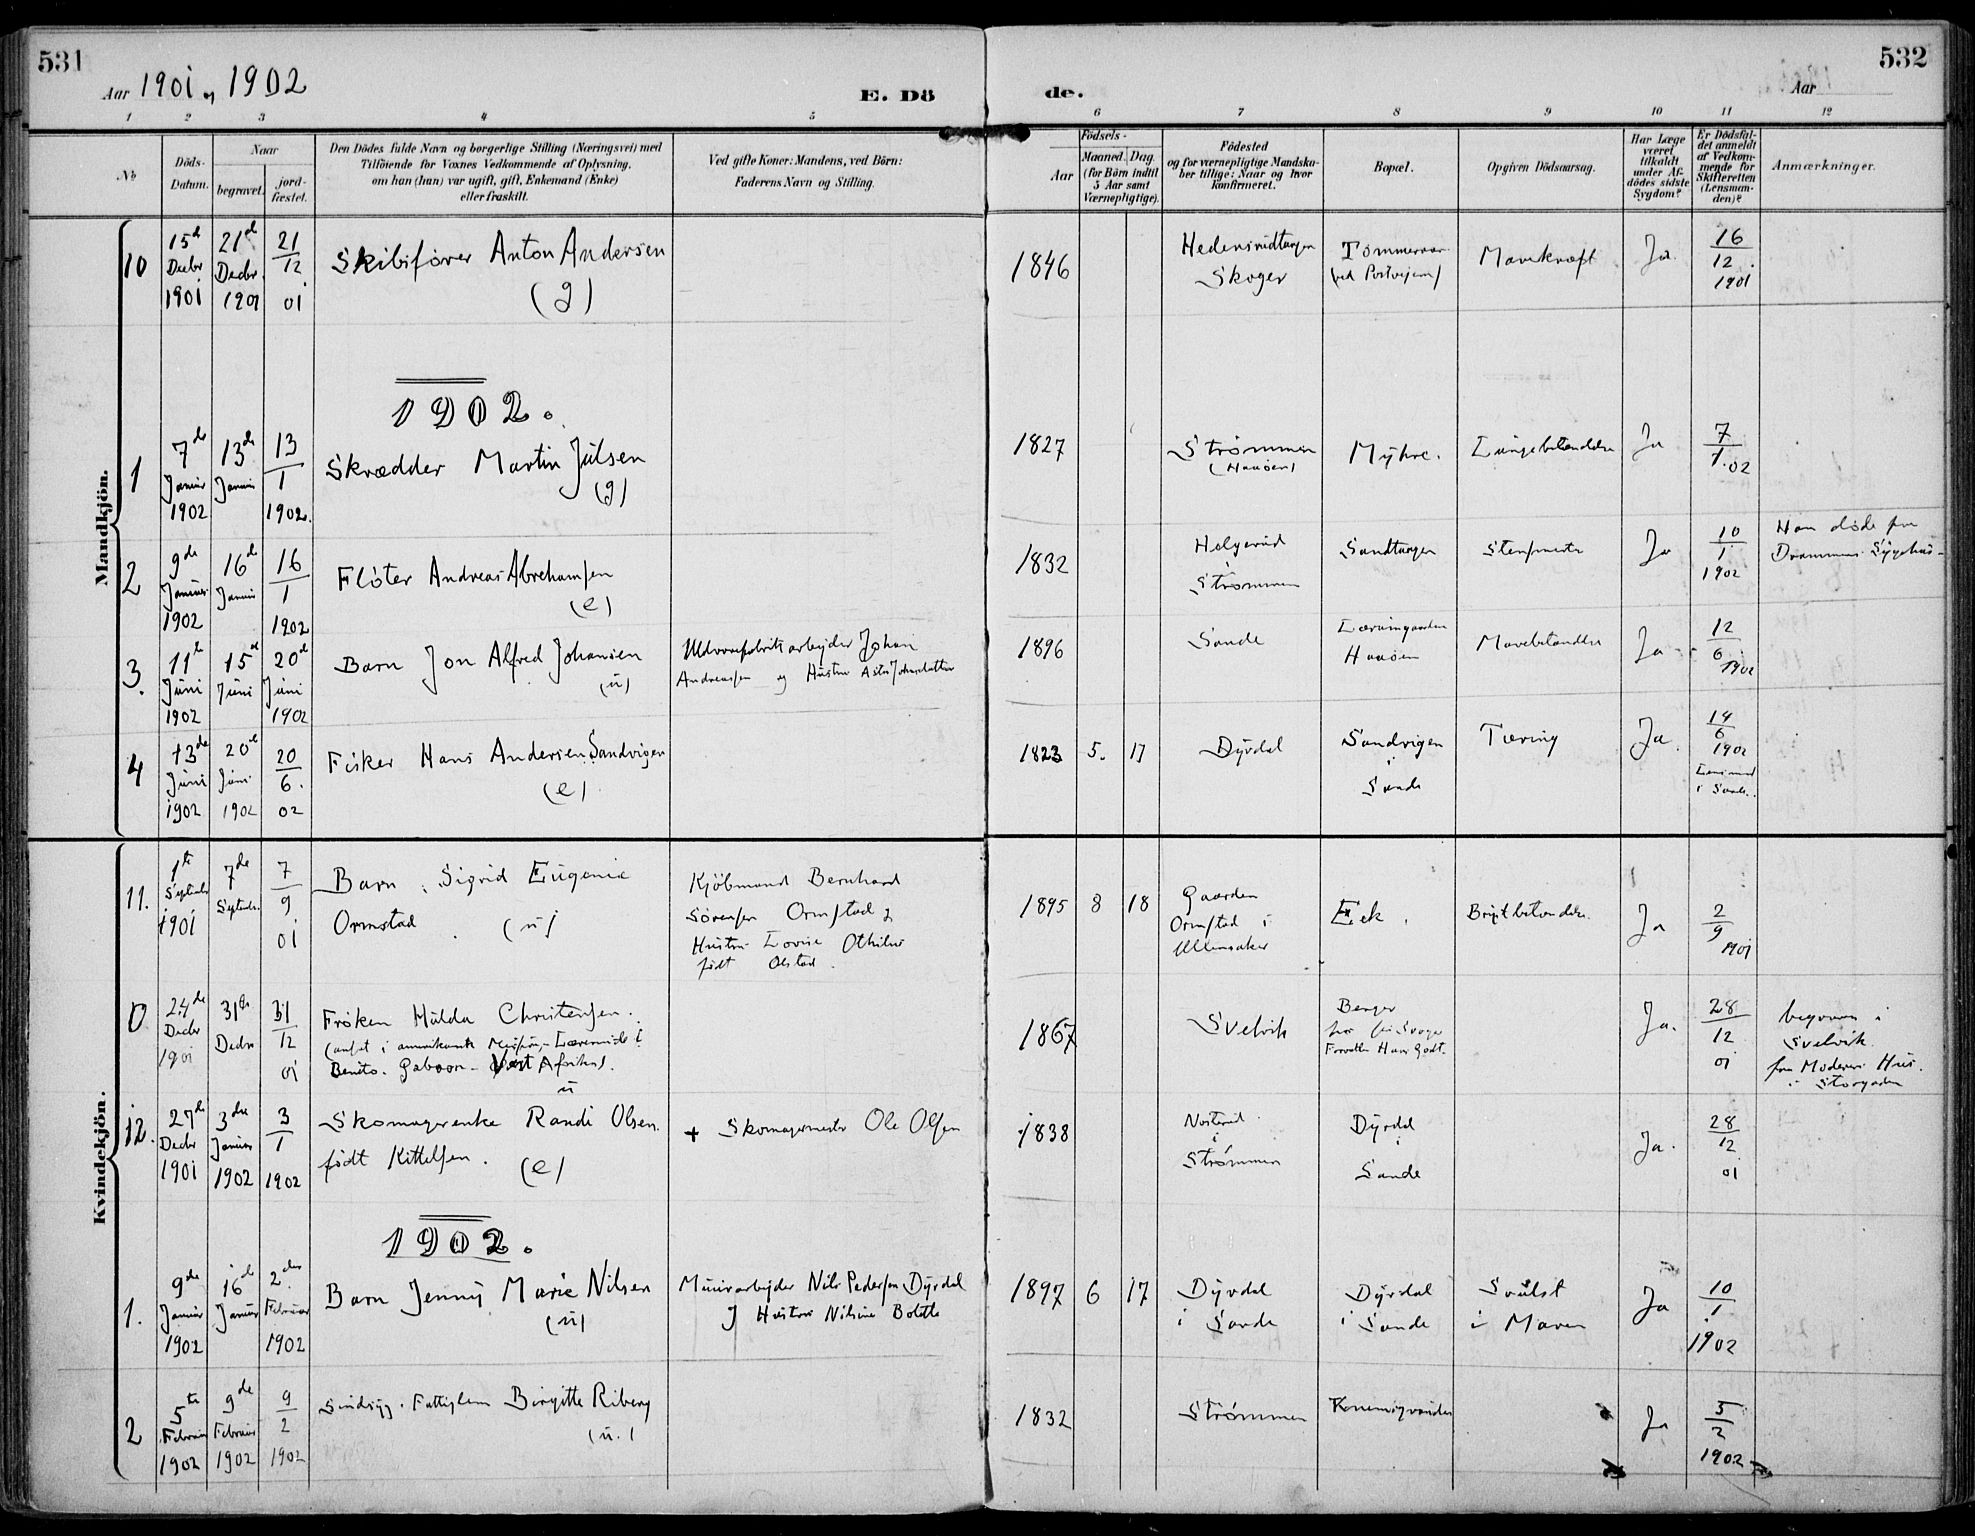 531
Aar 1901 og 1902
E. Dö
de.
532
Aar
1 2 3 4 5
6 7 8 9 10 11 12
No
Döds-
Datum.
Naar
begravet.
jord-
fæstet.
Den Dödes fulde Navn og borgerlige Stilling (Næringsvei) med
Tilföiende for Voxnes Vedkommende af Oplysning,
om han (hun) var ugift, gift, Enkemand (Enke)
eller fraskilt.
Ved gifte Koner: Mandens, ved Börn:
Faderens Navn og Stilling.
Födsels-
Aar
Maaned. Dag.
(for Börn indtil
5 Aar samt
Værnepligtige).
Födested
og for værnepligtige Mandska-
ber tillige: Naar og hvor
konfirmeret.
Bopæl.
Opgiven Dödsaarsag.
Har Læge
været
tilkaldt
under Af-
dödes sidste
Sygdom?
Er Dödsfal-
det anmeldt
af Vedkom-
mende for
Skifteretten
(Lensman-
den)?
Anmærkninger.
Mandkjön.
10
15d Decbr 1901
21d Decbr 1901
21/12 01
Skibsfører Anton Andersen
(g)
1846
Skoger
Mavekræft
Ja
16/12 1901
1902.
1
7de Januar 1902
13de Januar
13/1 1902.
Skrædder Martin Julsen
(g)
1827
Strømmen
Myhre.
Lungebetændelse
Ja
7/1 02
2
9de Januar 1902
16d Januar
16/1 1902
Fløter Andreas Abrahamsen
(e)
1832
Holgerud
i
Strømmen
Sandtangen
Ja
10/1 1902
Han døde paa
Drammens Sygehus
3.
11te Juni 1902
15de Juni
20de Juni 1902
Barn Jon Alfred Johansen
(u)
Uldvarefabriksarbejder Johan
Andreassen og Hustru
1896
Sande
Mavebetændelse
Ja
12/6 1902
4
13de Juni 1902
20de Juni 1902
20/6. 02
Fisker Hans Andersen Sandvigen
(e)
1823 5. 17
Dyrdal
Sandvigen
i
Sande
Tæring
Ja.
14/6 1902
Lensmand
i Sande.
Kvindekjön.
11.
1te Septembr 1901
7de Septembr.
7/9 01
Barn Sigrid Eugenie
Ormstad (u)
Kjöbmand Bernhard
Sørensen Ormstad &
Hustru Lovise Othilie
født Olstad.
1895 8 18
Gaarden
Ormstad i
Ullensaker
Eek.
Brystbetændelse.
Ja
2/9 1901
0
24de Decbr 1901
31te Decbr
31/12 01
Frøken Hulda Christensen.
(ansat i amerikansk Missions-Læreinde i
Benito. Gaboon - Vest Afrika).
u
1867
Svelvik
Berger
hos sin Svoger
Forvalter Hans Godt.
Ja.
28/12 01
begraven i
Svelvik.
fra Moderens Hus.
i Storgaden
12.
27de Decbr 1901
3die Januar 1902
3/1 1902
Skomagerenke Randi Olsen.
født Kittelsen. (e)
+ Skomagermester Ole Olsen
1838
i
Strømmen
Dyrdal
i
Sande
Ja.
28/12 01
1902.
1.
9de Januar 1902
16d Januar
2den Februar 1902
Barn Jenny Marie Nilsen
(u)
Murarbejder Nils Pedersen Dyrdal
og Hustru Nilsine Bolette
1897 6 17
Dyrdal
i Sande
Dyrdal
i Sande
Svulst
i Maven
Ja
10/1 1902
2
5te Februar 1902
9de Februar 1902
9/2 1902
Sindsyg. Fattiglem Birgitte Riberg
(u.)
1832
Strømmen
Ja
5/2 1902